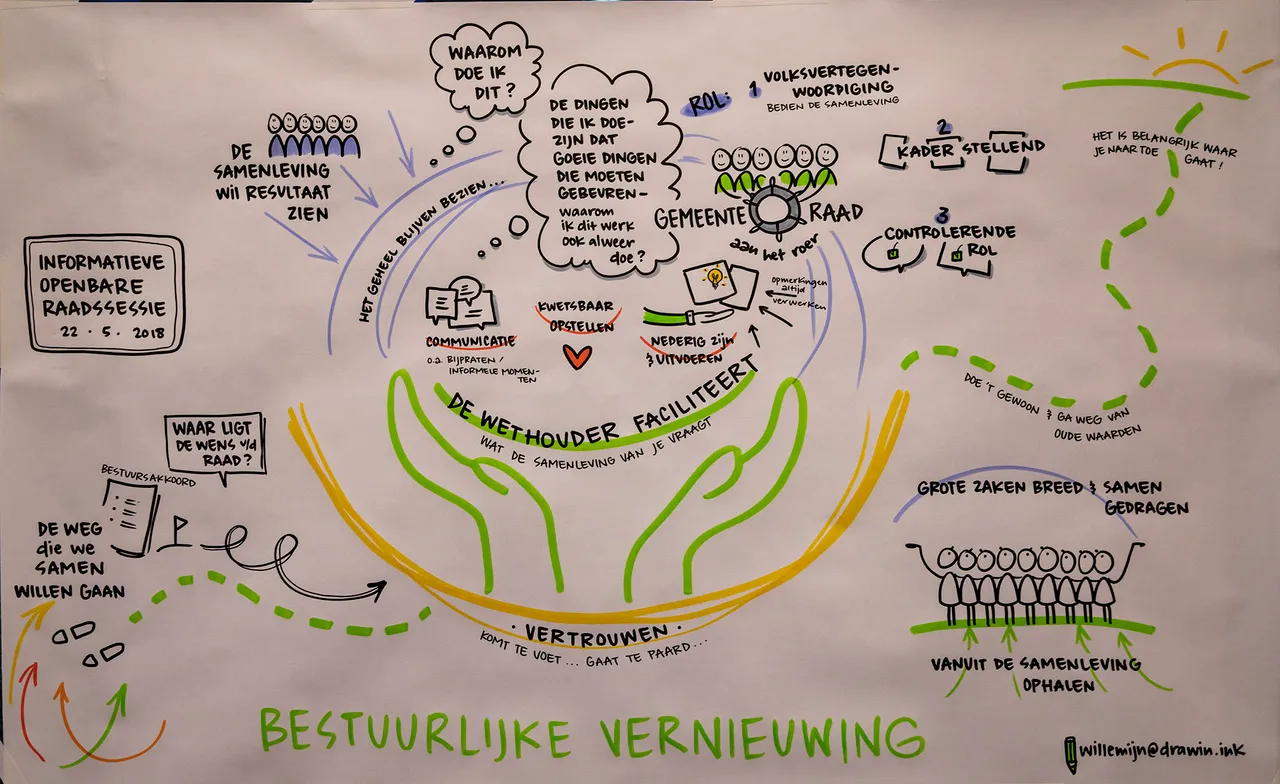 WAAROM
DOE IK
DIT?
DE DINGEN
DIE IK DOE-
ZIJN DAT
GOEIE DINGEN
DIE MOETEN
GEBEUREN-
waarom
ik dit werk
ook alweer
doe?
ROL: 1 VOLKSVERTEGEN-
WOORDIGING
BEDIEN DE SAMENLEVING
2
KADER STELLEND
3
CONTROLERENDE
ROL
GEMEENTE RAAD
aan het roer
DE
SAMENLEVING
WIL RESULTAAT
ZIEN
HET GEHEEL BLIJVEN BEZIEN...
HET IS BELANGRIJK WAAR
JE NAAR TOE GAAT!
INFORMATIEVE
OPENBARE
RAADSSESSIE
22.5.2018
COMMUNICATIE
o.a. BIJPRATEN/
INFORMELE MOMEN-
TEN
KWETSBAAR
OPSTELLEN
NEDERIG zijn
& UITVOEREN
opmerkingen
altijd
verwerken
DE WETHOUDER FACILITEERT
WAT DE SAMENLEVING VAN JE VRAAGT
DOE 'T GEWOON & GA WEG VAN
OUDE WAARDEN
WAAR LIGT
DE WENS v/d
RAAD?
BESTUURSAKKOORD
DE WEG
die we
SAMEN
WILLEN GAAN
GROTE ZAKEN BREED & SAMEN
GEDRAGEN
VANUIT DE SAMENLEVING
OPHALEN
· VERTROUWEN ·
KOMT TE VOET... GAAT TE PAARD...
BESTUURLIJKE VERNIEUWING
willemijn@drawin.ink